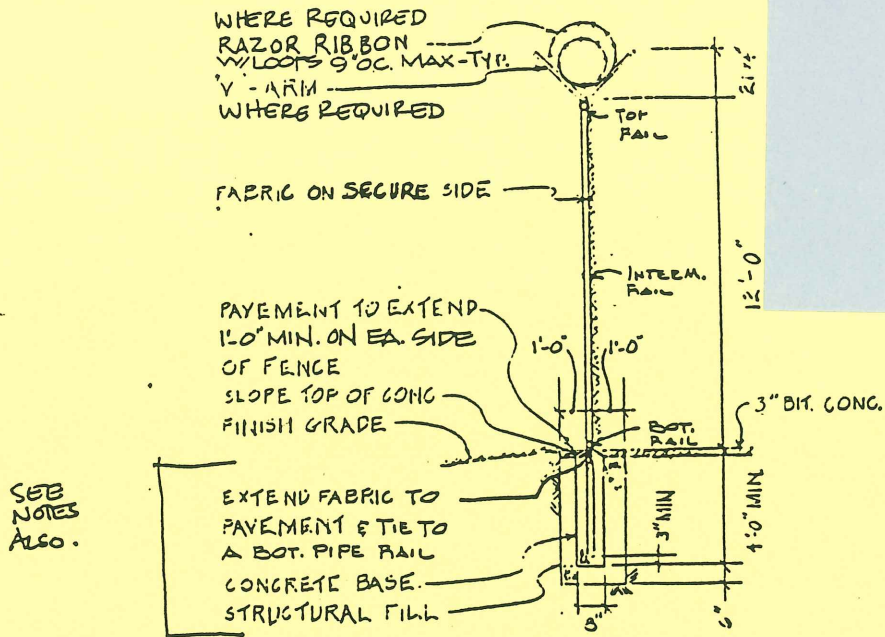 WHERE REQUIRED
RAZOR RIBBON
W/LOOPS 9"OC. MAX-TYP.
'V'-ARM
WHERE REQUIRED
TOP
RAIL
FABRIC ON SECURE SIDE
INTERM.
RAIL
12'-0"
PAVEMENT TO EXTEND
1'-0" MIN. ON EA. SIDE
OF FENCE
1'-0" 1'-0"
SLOPE TOP OF CONC
FINISH GRADE
BOT.
RAIL
3" BIT. CONC.
SEE
NOTES
ALSO.
EXTEND FABRIC TO
PAVEMENT & TIE TO
A BOT. PIPE RAIL
CONCRETE BASE
STRUCTURAL FILL
3" MIN
4'-0" MIN
8"
6"